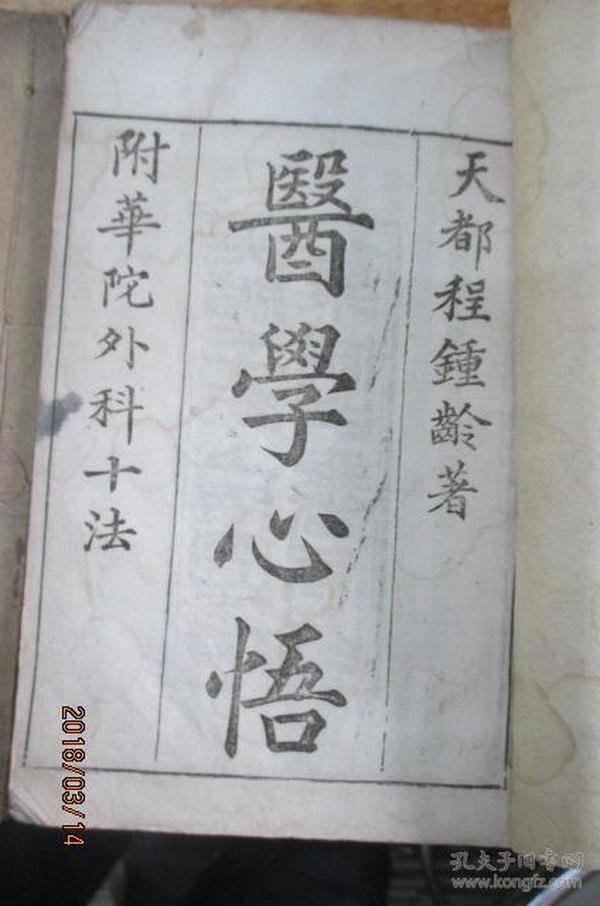 天都程鍾齡著
醫學心悟
附華陀外科十法
2018/03/14
孔夫子旧书网
www.kongfz.com